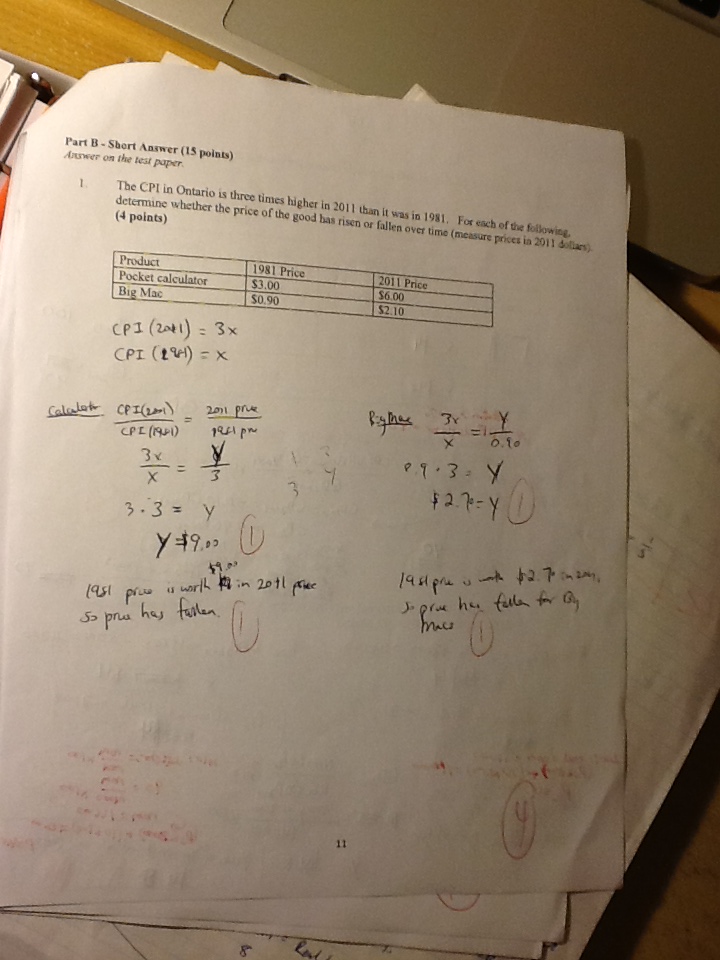 Part B - Short Answer (15 points)
Answer on the test paper.
1. The CPI in Ontario is three times higher in 2011 than it was in 1981. For each of the following,
determine whether the price of the good has risen or fallen over time (measure prices in 2011 dollars).
(4 points)
Product 1981 Price 2011 Price
Pocket calculator $3.00 $6.00
Big Mac $0.90 $2.10
CPI (2011) = 3x
CPI (1981) = x
Calculator CPI(2011) / CPI(1981) = 2011 price / 1981 pri
3x / x = Y / 3
3 . 3 = Y
Y = $9.00
1
$9.00
1981 price is worth in 2011 price
so price has fallen.
1
Big Mac 3x / x = Y / 0.90
0.9 . 3 = Y
$2.70 = Y
1
1981 price is worth $2.70 in 2011,
so price has fallen for Big
Macs
1
4
11
8